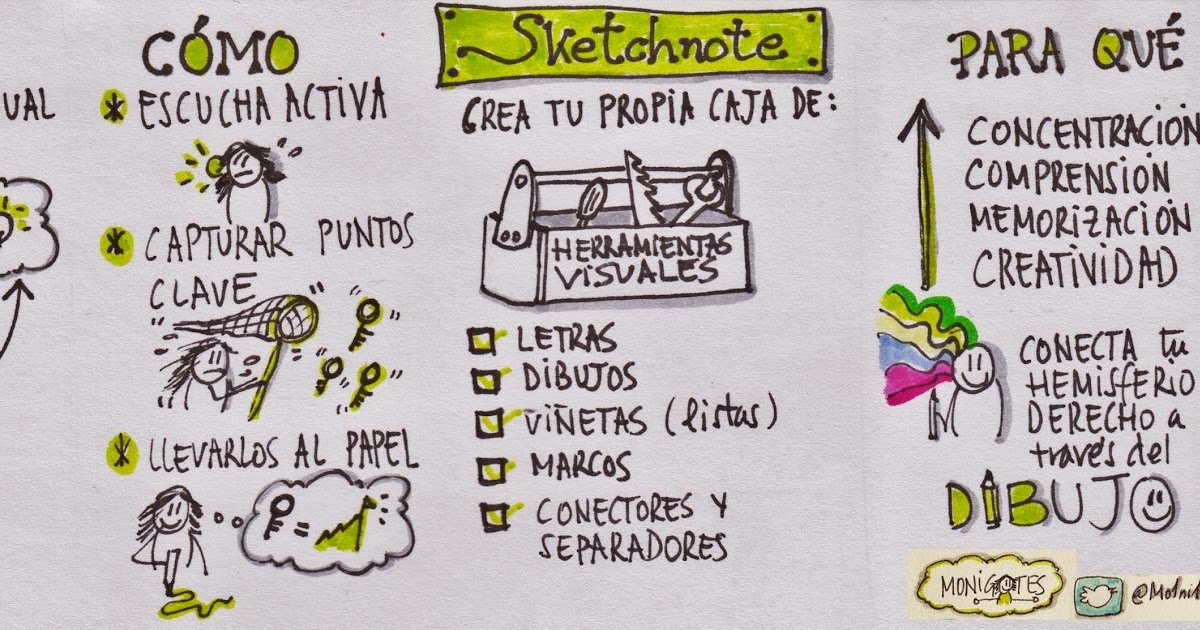 UAL
CÓMO
* ESCUCHA ACTIVA
* CAPTURAR PUNTOS
CLAVE
* LLEVARLOS AL PAPEL
=
Sketchnote
CREA TU PROPIA CAJA DE:
HERRAMIENTAS
VISUALES
LETRAS
DIBUJOS
VIÑETAS (listas)
MARCOS
CONECTORES Y
SEPARADORES
PARA QUÉ
CONCENTRACIÓN
COMPRENSIÓN
MEMORIZACIÓN
CREATIVIDAD
CONECTA tu
HEMISFERIO
DERECHO a
través del
DIBUJO
MONIGOTES